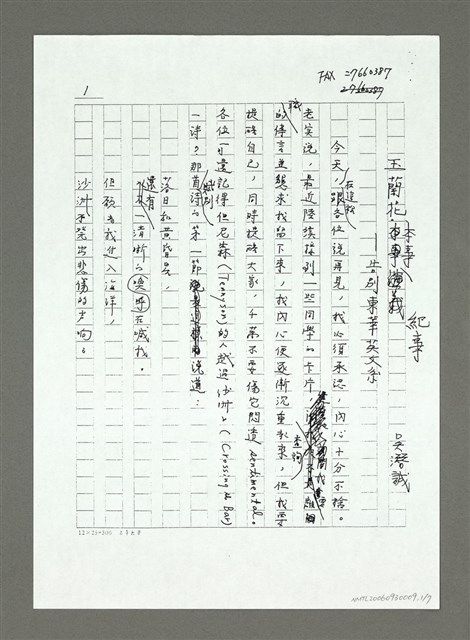 FAX 2766387
1
玉蘭花事 紀事
——告別東華英文系
吳潛誠
今天,在這裡跟各位說再見,我必須承認,內心十分不捨。
老實說,最近陸續接到一些同學的卡片,
的傳言並懇求我留下來,我內心便逐漸沉重起來,但我要
提醒自己,同時提醒大家,千萬不要傷它悶透 sentimental。
各位可還記得但尼森(Tennyson)的〈越過沙洲〉(Crossing the Bar)
一詩?那首詩的第一節說道:
落日和黃昏星,
還有一清晰的呼喚在喊我。
但願當我進入海洋,
沙洲不發出悲傷的聲響;
12×25=300
NMTL20060930009.1/7